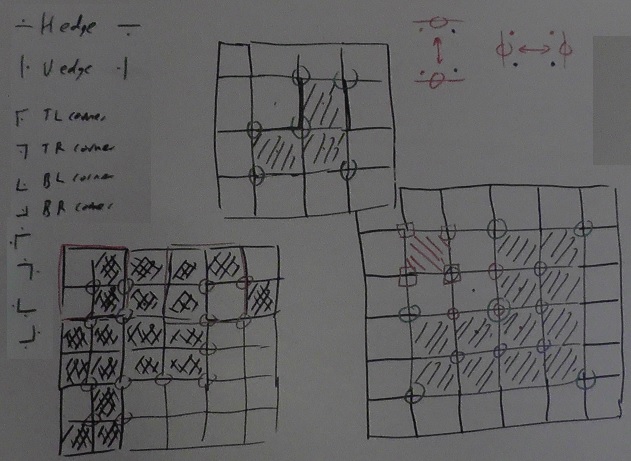 H edge
V edge
TL corner
TR corner
BL corner
BR corner